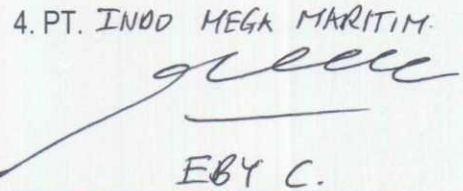 4. PT. INDO MEGA MARITIM.
EBY C.